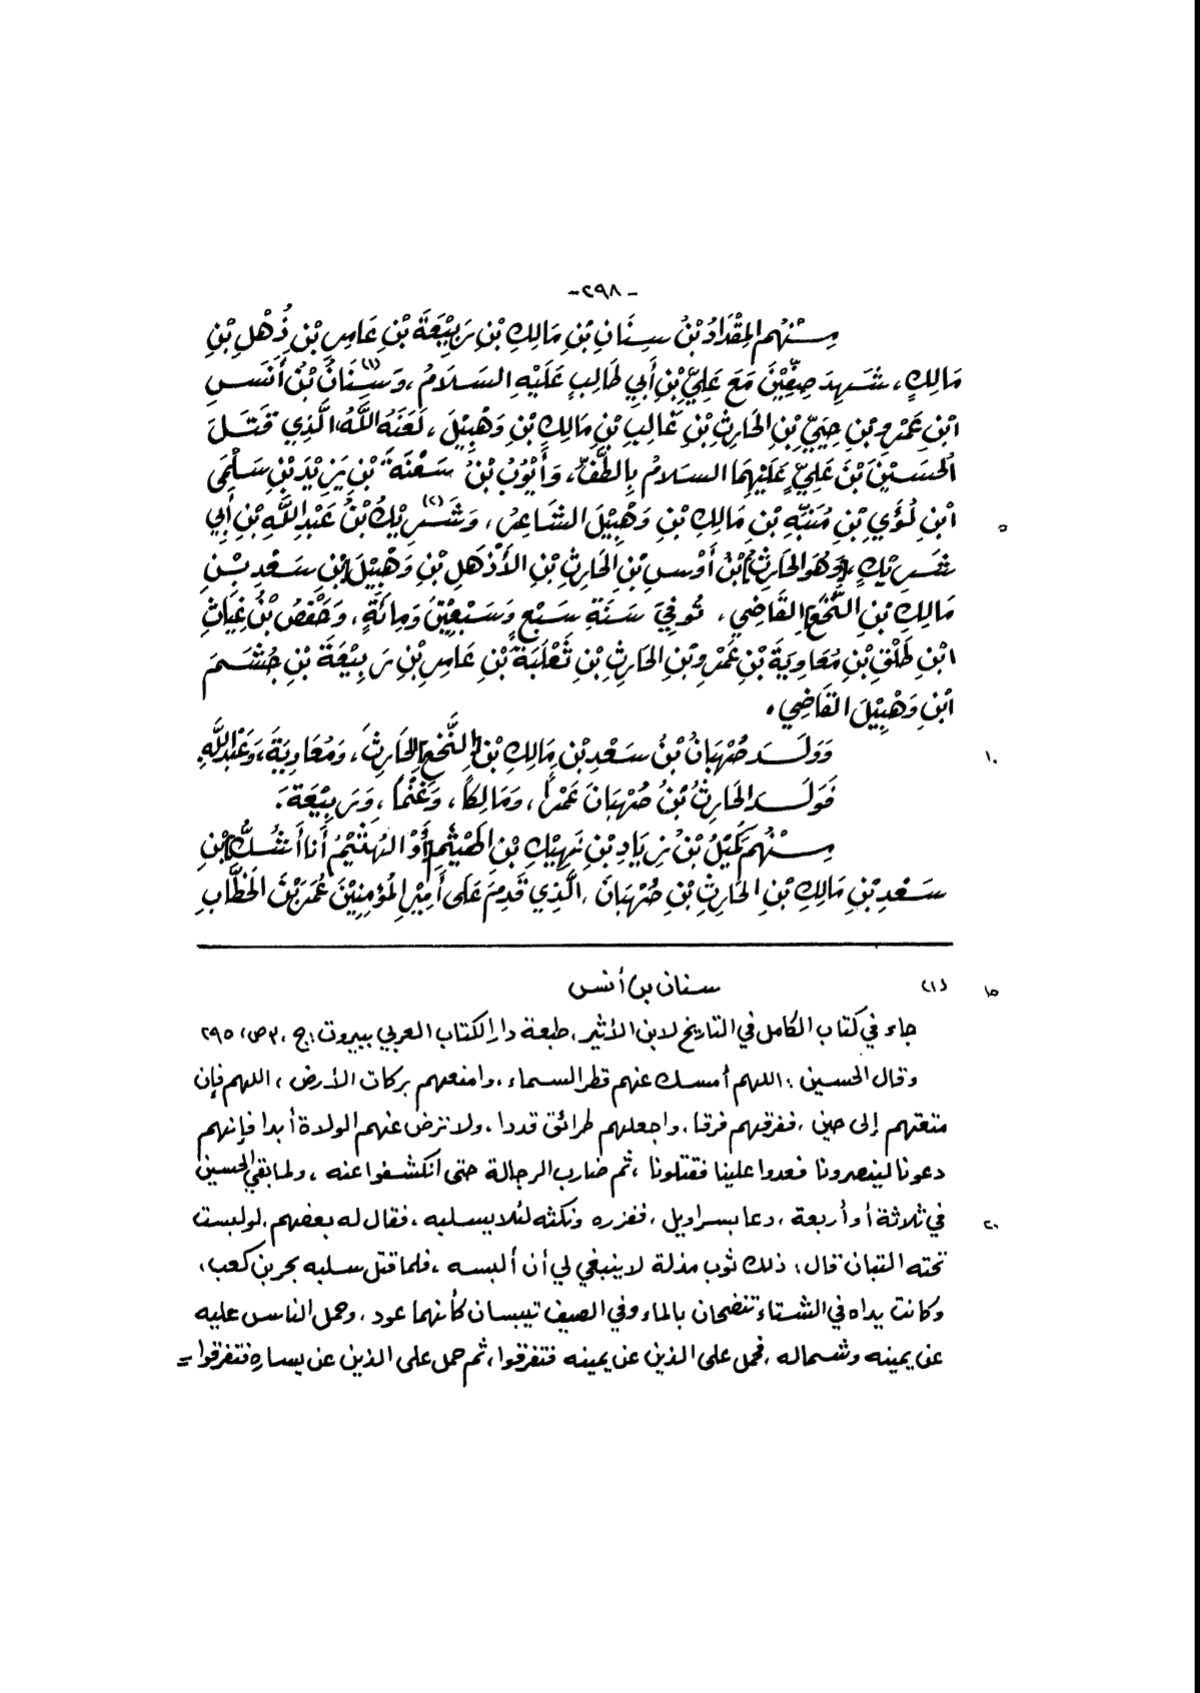 -٢٩٨-
مِنْهُم المِقْدَادُ بْنُ سِنَانِ بْنِ مَالِكِ بْنِ رَبِيْعَةَ بْنِ عَامِرِ بْنِ ذُهْلِ بْنِ
مَالِكٍ، شَهِدَ صِفِّيْنَ مَعَ عَلِيِّ بْنِ أَبِي طَالِبٍ عَلَيْهِ السَلَامُ، وَسِنَانُ (١) بْنُ أَنَسِ
ابْنِ عَمْرِو بْنِ حِيَيِّ بْنِ الحَارِثِ بْنِ غَالِبِ بْنِ مَالِكِ بْنِ وَهْبِيْلَ، لَعَنَهُ اللَّهُ، الَّذِي قَتَلَ
الحُسَيْنَ بْنَ عَلِيٍّ عَلَيْهِمَا السَلَامُ بِالطَّفِّ، وَأَيُّوْبُ بْنُ سَعْنَةَ بْنِ يَزِيْدَ بْنِ سَلْمَى
ابْنِ لُؤَيِ بْنِ مُنَبِّهِ بْنِ مَالِكِ بْنِ وَهْبِيْلَ الشَاعِرُ، وَشَرِيْكُ (٢) بْنُ عَبْدِ اللَّهِ بْنِ أَبِي
٥
شَرِيْكٍ، [وَهُوَ الحَارِثُ] بْنُ أَوْسِ بْنِ الحَارِثِ بْنِ الأَذْهَلِ بْنِ وَهْبِيْلَ [بْنِ سَعْدِ بْنِ
مَالِكِ بْنِ النَّخَعِ] القَاضِي، تُوفِيَ سَنَةَ سَبْعٍ وَسَبْعِيْنَ وَمِائَةٍ، وَحَفْصُ بْنُ غِيَاثِ
ابْنِ طَلْقِ بْنِ مُعَاوِيَةَ بْنِ عَمْرِو بْنِ الحَارِثِ بْنِ ثَعْلَبَةَ بْنِ عَامِرِ بْنِ رَبِيْعَةَ بْنِ جُشَمَ
ابْنِ وَهْبِيْلَ القَاضِي.
وَوَلَدَ صُهْبَانُ بْنُ سَعْدِ بْنِ مَالِكِ بْنِ [النَّخَعِ] الحَارِثَ، وَمُعَاوِيَةَ، وَعَبْدَ اللَّهِ.
١٠
فَوَلَدَ الحَارِثُ بْنُ صُهْبَانَ عَمْراً، وَمَالِكاً، وَغَنْماً، وَرَبِيْعَةَ.
مِنْهُم كُمَيْلُ بْنُ زِيَادِ بْنِ نَهِيْكِ بْنِ الهَيْثَمِ [أَوْ النُهَيْثِمُ أَنا أَشُكُّ] بْنِ
سَعْدِ بْنِ مَالِكِ بْنِ الحَارِثِ بْنِ صُهْبَانَ، الَّذِي قَدِمَ عَلَى أَمِيْرِ المُؤْمِنِيْنَ عُمَرَ بْنَ الخَطَّابِ
(١) سنان بن أنس
١٥
جاء في كتاب الكامل في التاريخ لابن الأثير، طبعة دار الكتاب العربي ببيروت: ج، ٣ ص، ٢٩٥
وقال الحسين: اللهم أمسك عنهم قطر السماء، وامنعهم بركات الأرض، اللهم فإن
متعتهم إلى حين، ففرقهم فرقا، واجعلهم طرائق قددا، ولا ترض عنهم الولاة أبدا فإنهم
دعونا لينصرونا فعدوا علينا فقتلونا، ثم ضارب الرجالة حتى انكشفوا عنه، ولما بقي الحسين
في ثلاثة أو أربعة، دعا بسراويل، ففزره ونكثه لئلا يسلبه، فقال له بعضهم، لو لبست
٢٠
تحته التبان قال: ذلك ثوب مذلة لا ينبغي لي أن ألبسه، فلما قتل سلبه بحر بن كعب،
وكانت يداه في الشتاء تنضحان بالماء وفي الصيف تيبسان كأنهما عود، وحمل الناس عليه
عن يمينه وشماله، فحمل على الذين عن يمينه فتفرقوا، ثم حمل على الذين عن يساره فتفرقوا =